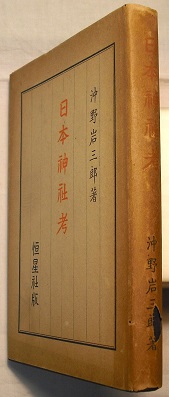 沖野岩三郎著
日本神社考
恒星社版
日本神社考
沖野岩三郎著